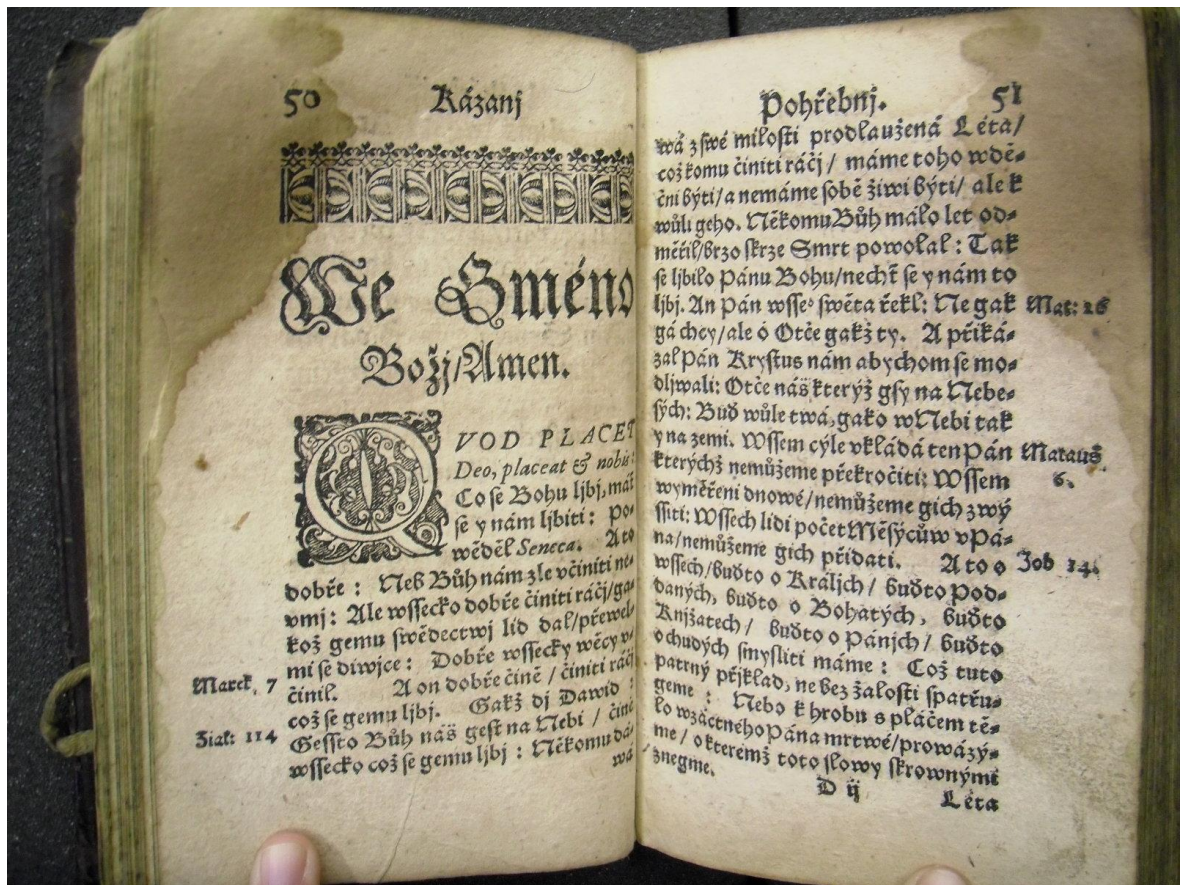 50 Kázanj
We Gméno
Božj/Amen.
QVOD PLACET
Deo, placeat & nobis:
Co se Bohu ljbj, má
se y nám ljbiti: Po-
wěděl Seneca. A to
dobře: Neb Bůh nám zle včiniti ne-
vmj: Ale wssecko dobře činiti ráčj/ga-
kož gemu swědectwj lid dal/přewel-
mi se diwjce: Dobře wssecky wěcy v-
Marek. 7 činil. A on dobře čině / činiti ráčj
což se gemu ljbj. Gakž dj Dawid:
Žial: 114 Gessto Bůh náš gest na Nebi / čině
wssecko což se gemu ljbj: Někomu dá-
wá
Pohřebnj. 51
wá z swé milosti prodlaužená Léta/
což komu činiti ráčj / máme toho wdě-
čni býti/a nemáme sobě žiwi býti/ ale k
wůli geho. Někomu Bůh málo let od-
měřil/brzo skrze Smrt powolal: Tak
se ljbilo Pánu Bohu/nechť se y nám to
ljbj. An Pán wsse° swěta řekl: Ne gak Mat: 26
gá chcy/ale ó Otče gakž ty. A přiká-
zal Pán Krystus nám abychom se mo-
dljwali: Otče náš kterýž gsy na Nebe-
sých: Buď wůle twá, gako w Nebi tak
y na zemi. Wssem cýle vkládá ten Pán Matauš
kterýchž nemůžeme překročiti: Wssem 6.
wyměřeni dnowé/nemůžeme gich zwý
ssiti: Wssech lidi počet Měsýcůw v Pá-
na/nemůžeme gich přidati. A to o Job 14.
wssech/buďto o Králjch / buďto Pod-
daných, buďto o Bohatých, buďto
Knjžatech / buďto o Pánjch / buďto
o chudých smysliti máme: Což tuto
patrný přjklad, ne bez žalosti spatřu-
geme: Nebo k hrobu s pláčem tě-
lo wzáctného Pána mrtwé/prowázý-
me / o kteremž toto slowy skrownými
znegme.
D ij Léta